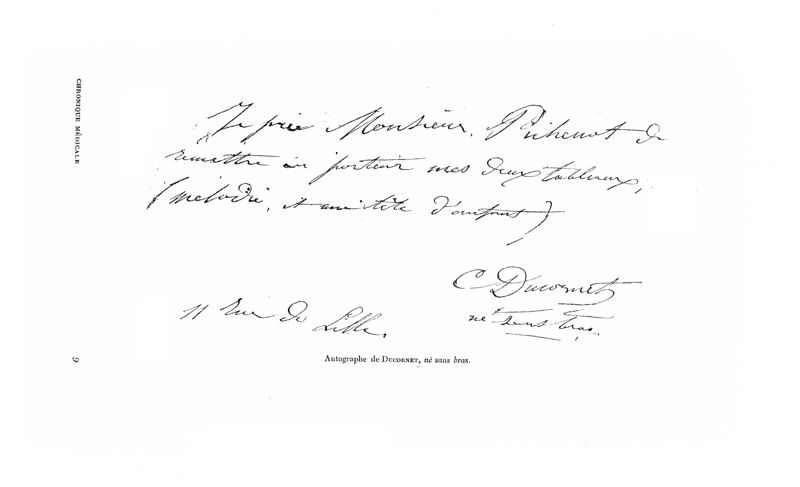 CHRONIQUE MÉDICALE
Je prie Monsieur de
remettre au porteur mes deux tableaux,
(mélodie, et une tête d'enfant)
C Ducornet
né sans bras.
11 rue de Lille.
Autographe de DUCORNET, né sans bras.
9